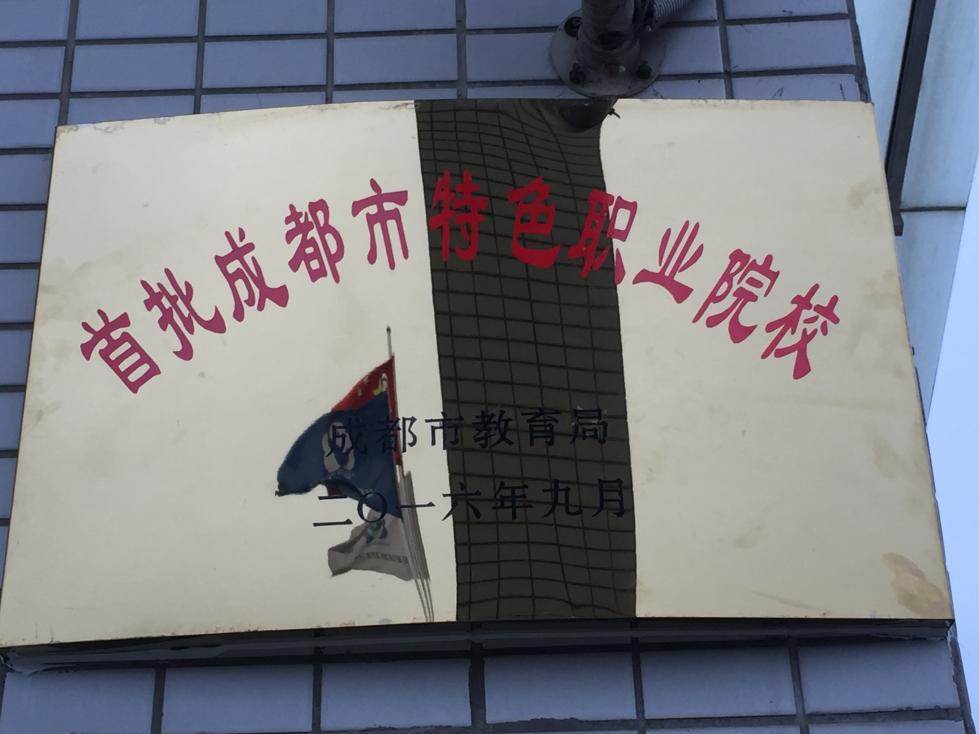 首批成都市特色职业院校
成都市教育局
二〇一六年九月